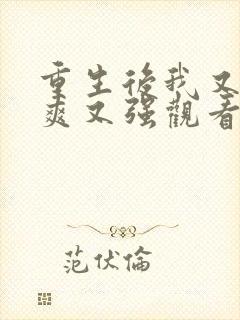 重生後我又
爽又强觀看
范伏倫